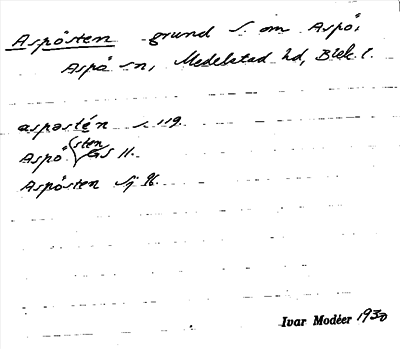 Aspösten grund S. om Aspö,
Aspö sn, Medelstad hd, Blek. l.
aspøstén s. 119.
Aspö sten GS 11.
Aspösten Sj 96.
Ivar Modéer 1930